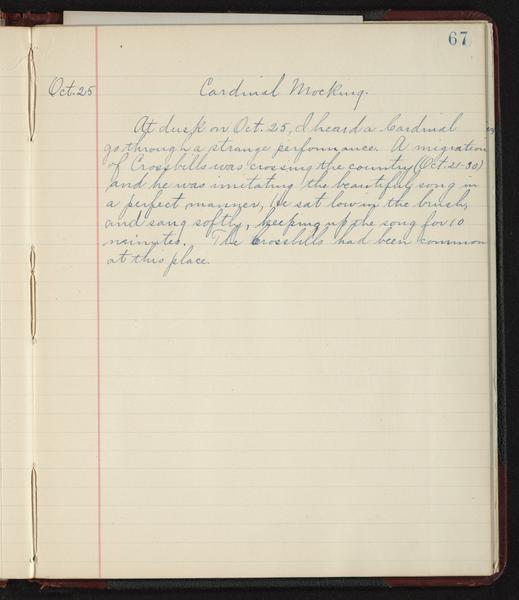 67
Oct. 25 Cardinal Mocking.
At dusk on Oct. 25, I heard a Cardinal
go through a strange performance. A migration
of Crossbills was crossing the country (Oct. 21-30)
and he was imitating the beautiful song in
a perfect manner, He sat low in the brush,
and sang softly, keeping up the song for 10
minutes. The Crossbills had been common
at this place.